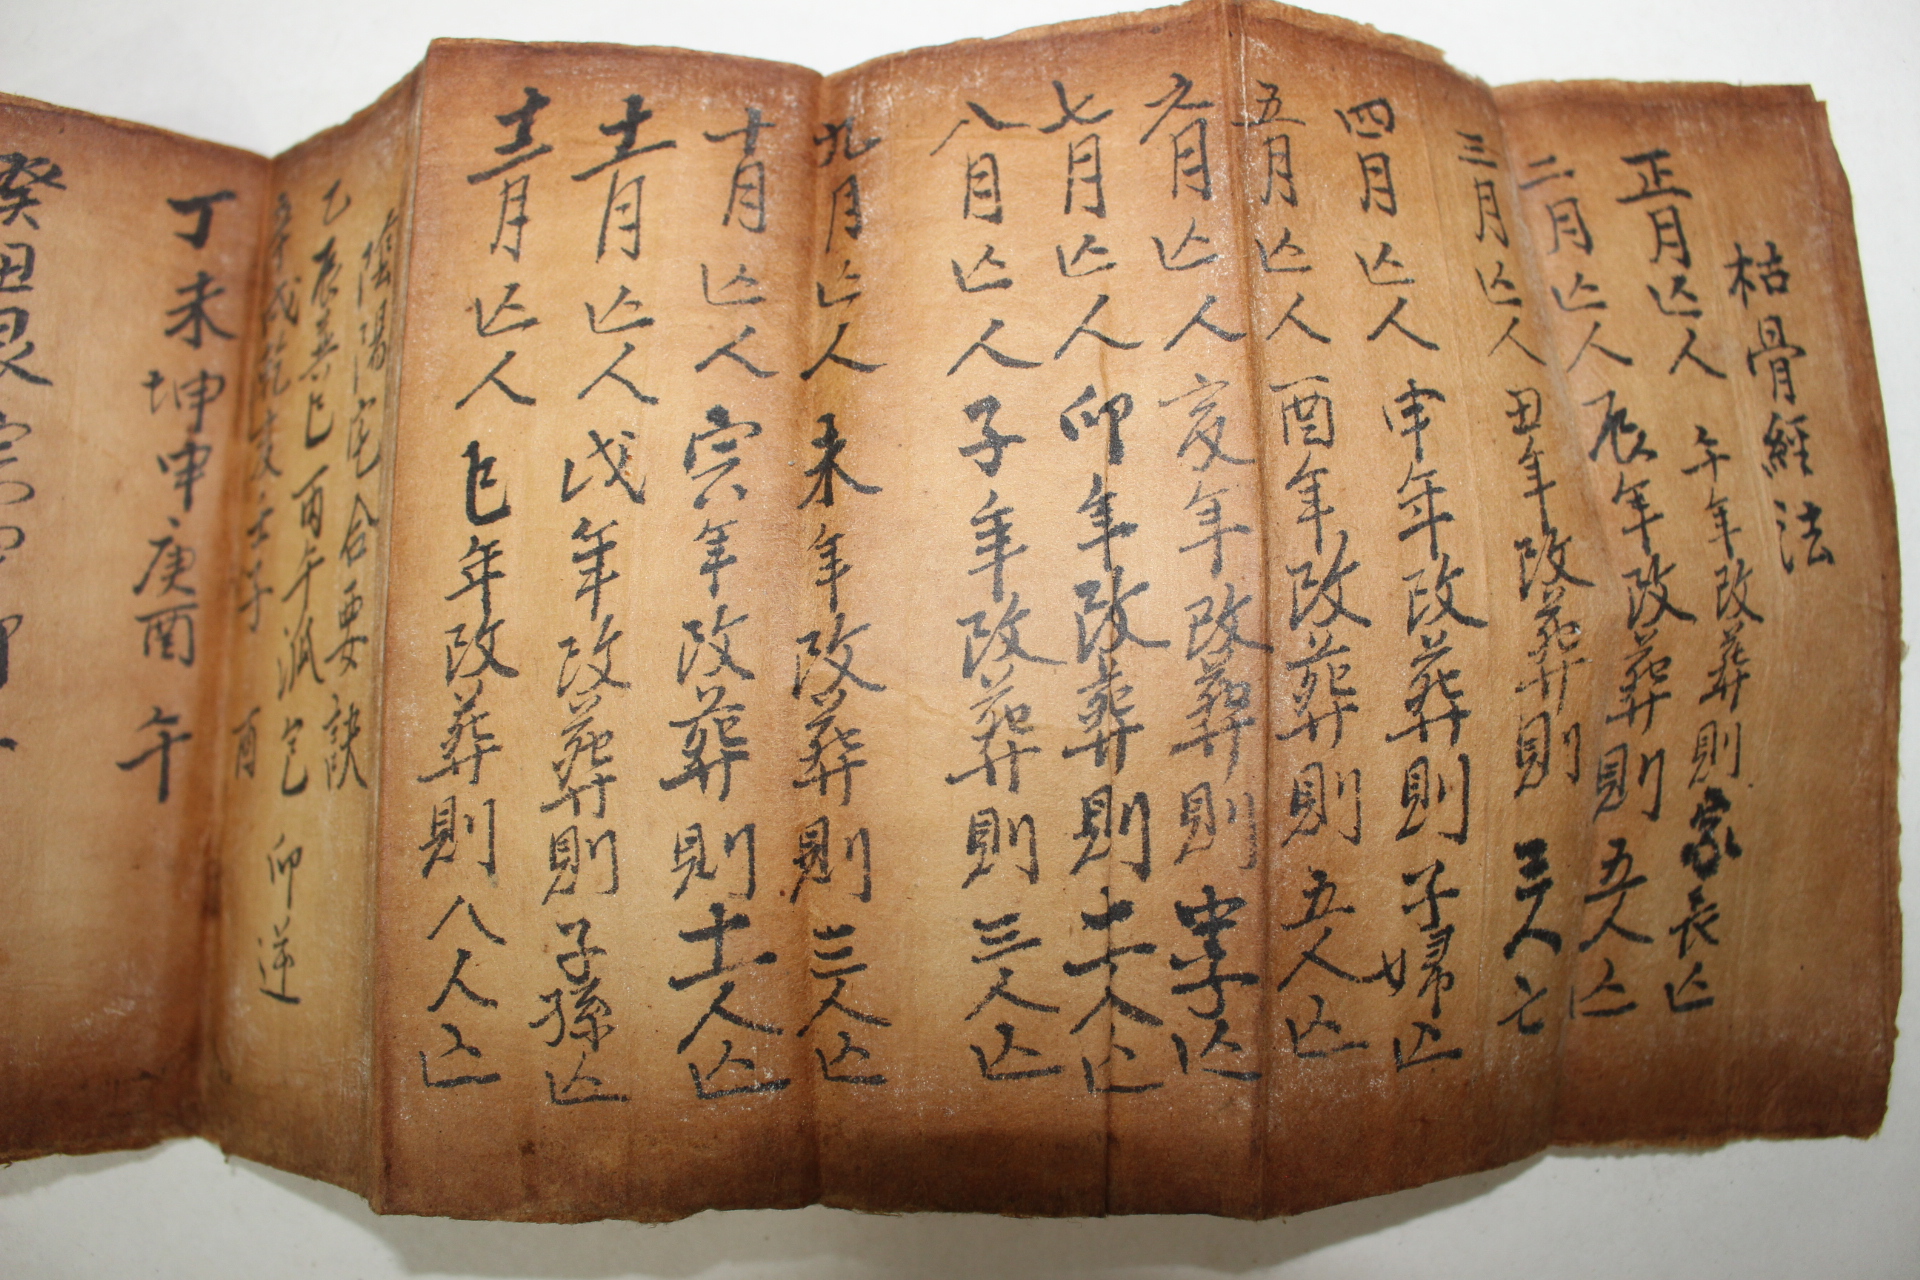 枯骨經法
正月亾人 午年改葬則家長亾
二月亾人 辰年改葬則 五人亾
三月亾人 丑年改葬則 三人亡
四月亾人 申年改葬則子婦亾
五月亾人 酉年改葬則 五人亾
六月亾人 亥年改葬則 中子亾
七月亾人 卯年改葬則十二人亾
八月亾人 子年改葬則三人亾
九月亾人 未年改葬則 三人亾
十月亾人 寅年改葬則十一人亾
十一月亾人 戌年改葬則子孫亾
十二月亾人 巳年改葬則八人亾
陰陽宅合要訣
乙辰巽巳丙午派 卯逆
辛戌乾亥壬子 酉
丁未坤申庚酉 午
癸丑艮寅甲卯